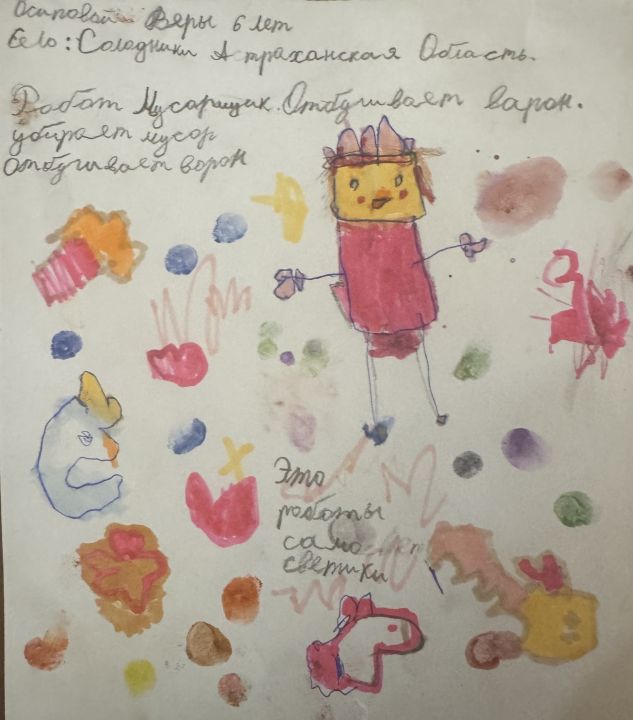 Осиповой Веры 6 лет
Село: Солодники Астраханская Область.
Работ Мусарщик. Отпугивает варон.
убирает мусор
отпугивает ворон
Это
роботы
само
светики